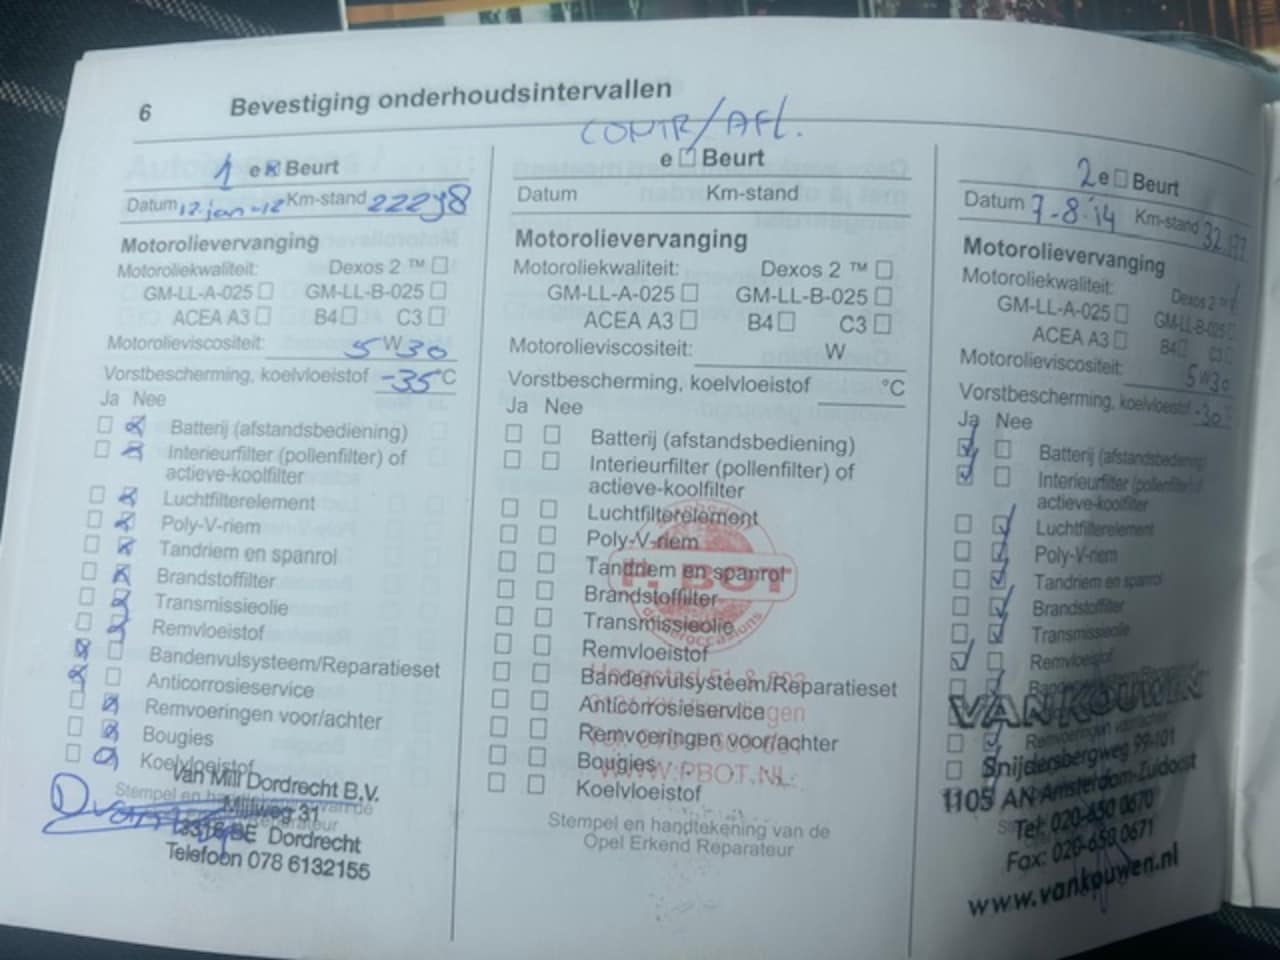 6 Bevestiging onderhoudsintervallen
CONTR/AFL.
1 e Beurt
Datum 12 jan -12 Km-stand 22298
Motorolievervanging
Motoroliekwaliteit: Dexos 2 ™
GM-LL-A-025 GM-LL-B-025
ACEA A3 B4 C3
Motorolieviscositeit: 5 W 30
Vorstbescherming, koelvloeistof -35 °C
Ja Nee
Batterij (afstandsbediening)
Interieurfilter (pollenfilter) of
actieve-koolfilter
Luchtfilterelement
Poly-V-riem
Tandriem en spanrol
Brandstoffilter
Transmissieolie
Remvloeistof
Bandenvulsysteem/Reparatieset
Anticorrosieservice
Remvoeringen voor/achter
Bougies
Koelvloeistof
Van Mill Dordrecht B.V.
Mijlweg 31
3316 BE Dordrecht
Telefoon 078 6132155
e Beurt
Datum Km-stand
Motorolievervanging
Motoroliekwaliteit: Dexos 2 ™
GM-LL-A-025 GM-LL-B-025
ACEA A3 B4 C3
Motorolieviscositeit: W
Vorstbescherming, koelvloeistof °C
Ja Nee
Batterij (afstandsbediening)
Interieurfilter (pollenfilter) of
actieve-koolfilter
Luchtfilterelement
Poly-V-riem
Tandriem en spanrol
Brandstoffilter
Transmissieolie
Remvloeistof
Bandenvulsysteem/Reparatieset
Anticorrosieservice
Remvoeringen voor/achter
Bougies
Koelvloeistof
P. BOT
WWW.PBOT.NL
Stempel en handtekening van de
Opel Erkend Reparateur
2 e Beurt
Datum 7-8-'14 Km-stand 32.177
Motorolievervanging
Motoroliekwaliteit: Dexos 2 ™
GM-LL-A-025 GM-LL-B-025
ACEA A3 B4 C3
Motorolieviscositeit: 5 W 30
Vorstbescherming, koelvloeistof -30
Ja Nee
Batterij (afstandsbediening
Interieurfilter (pollenfilter) of
actieve-koolfilter
Luchtfilterelement
Poly-V-riem
Tandriem en spanrol
Brandstoffilter
Transmissieolie
Remvloeistof
VAN KOUWEN
Remvoeringen voor/achter
Snijdersbergweg 99-101
1105 AN Amsterdam-Zuidoost
Tel: 020-650 0670
Fax: 020-650 0671
www.vankouwen.nl